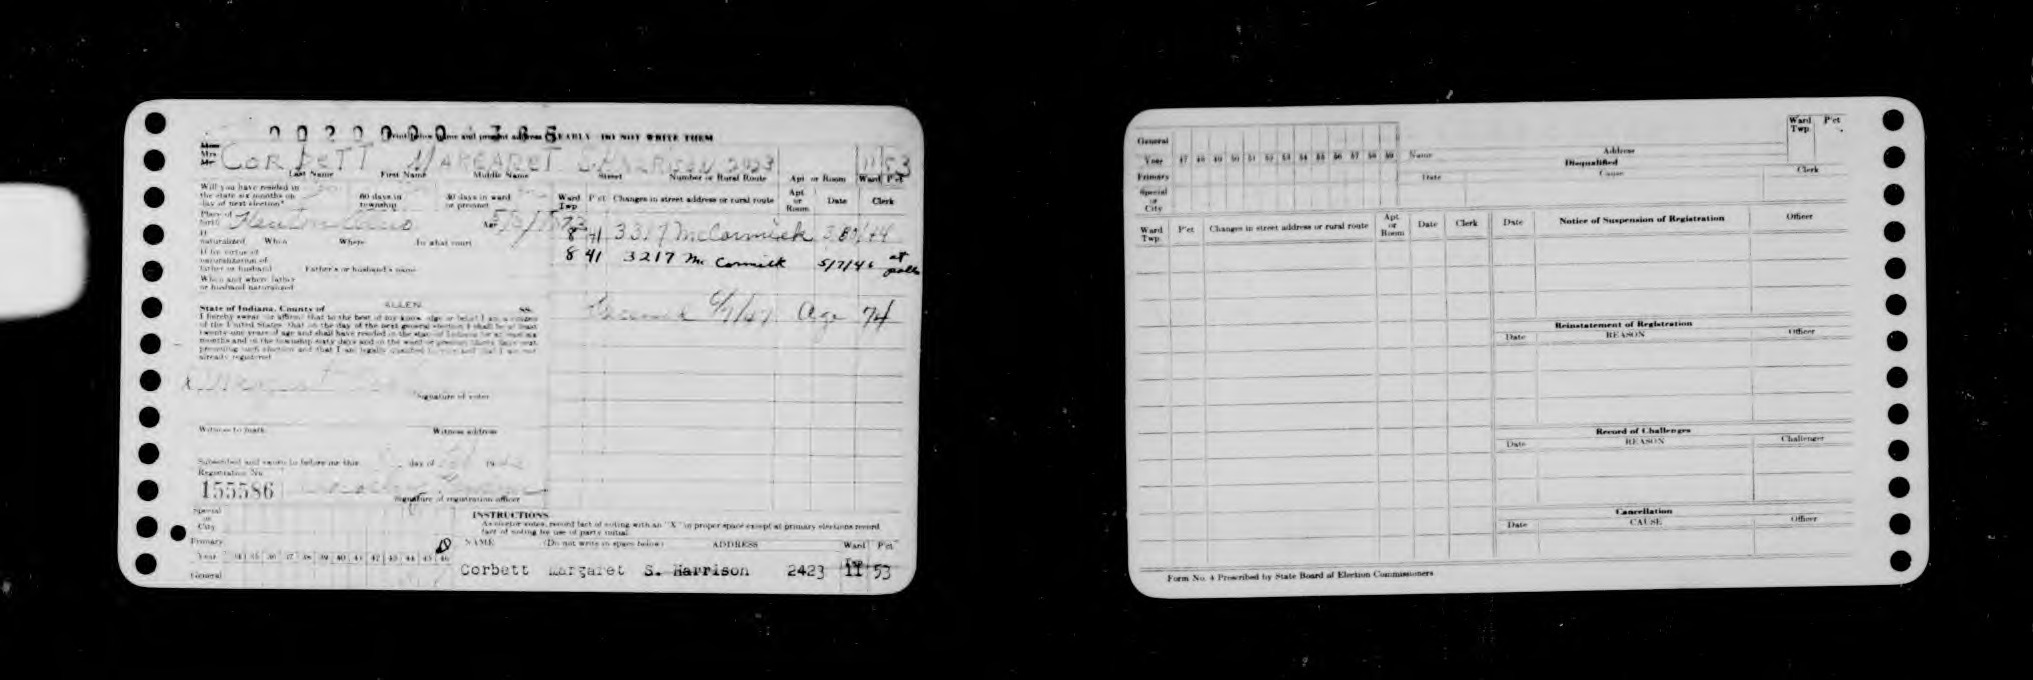 0020000 385
Print below name and present address CLEARLY - DO NOT WRITE THEM
Miss
Mrs
Mr
CORBETT MARGARET S. HARRISON 2423 11 53
Last Name First Name Middle Name Street Number or Rural Route Apt or Room Ward P'ct
Will you have resided in
the state six months on
day of next election?
60 days in
township
30 days in ward
or precinct
Place of
birth Kenton Ohio
If
naturalized When Where In what court
If by virtue of
naturalization of
father or husband Father's or husband's name
When and where father
or husband naturalized
State of Indiana, County of ALLEN SS.
I hereby swear or affirm that to the best of my knowledge or belief I am a citizen
of the United States, that on the day of the next general election I shall be at least
twenty-one years of age and shall have resided in the state of Indiana for at least six
months and in the township sixty days and in the ward or precinct thirty days next
preceding such election and that I am legally qualified to vote and that I am not
already registered
X Margaret
Signature of voter
Witness to mark Witness address
Subscribed and sworn to before me this day of 19
Registration No.
155586
Signature of registration officer
Ward
Twp P'ct Changes in street address or rural route Apt.
or
Room Date Clerk
8 41 3317 McCormick
8 41 3217 Mc Cormick 5/7/46 at
polls
6/7/47 Age 74
Special
or
City
Primary
Year 34 35 36 37 38 39 40 41 42 43 44 45 46
General
INSTRUCTIONS
As elector votes, record fact of voting with an "X" in proper space except at primary elections record
fact of voting by use of party initial.
NAME (Do not write in space below) ADDRESS Ward
Twp P'ct
Corbett Margaret S. Harrison 2423 11 53
General
Year 47 48 49 50 51 52 53 54 55 56 57 58 59
Primary
Special
or
City
Name Address
Ward
Twp P'ct
Disqualified
Date Cause Clerk
Ward
Twp. P'ct Changes in street address or rural route Apt.
or
Room Date Clerk
Date Notice of Suspension of Registration Officer
Reinstatement of Registration
Date REASON Officer
Record of Challenges
Date REASON Challenger
Cancellation
Date CAUSE Officer
Form No. 4 Prescribed by State Board of Election Commissioners